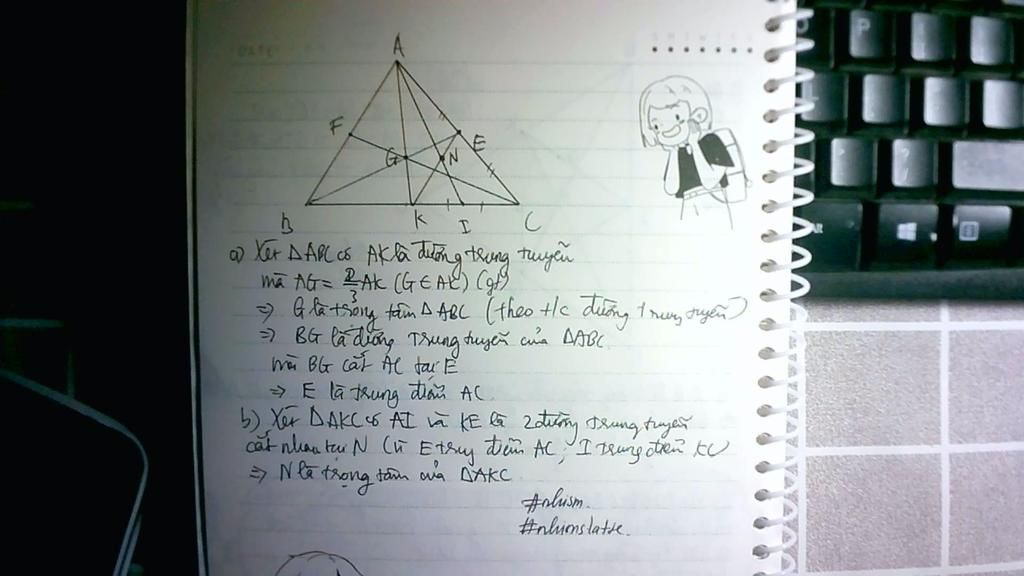 A
F
E
G
N
B
K
I
C
a) Xét ΔABC có AK là đường trung tuyến
mà AG = 2/3 AK (G ∈ AK) (gt)
⇒ G là trọng tâm ΔABC (theo t/c đường trung tuyến)
⇒ BG là đường trung tuyến của ΔABC.
mà BG cắt AC tại E
⇒ E là trung điểm AC.
b) Xét ΔAKC có AI và KE là 2 đường trung tuyến
cắt nhau tại N (vì E trung điểm AC; I trung điểm KC)
⇒ N là trọng tâm của ΔAKC.
#nhism.